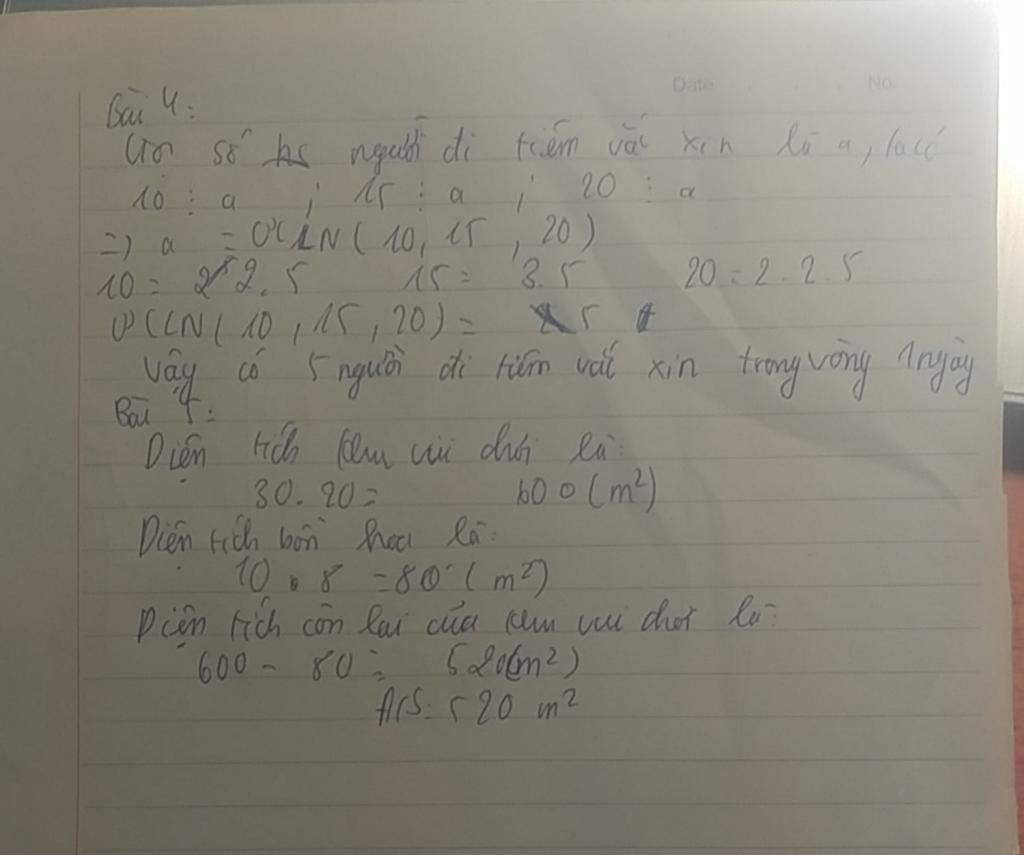 Date No.
Bài 4:
Gọi số hs người đi tiêm vắc xin là a, ta có
10 ⋮ a ; 15 ⋮ a ; 20 ⋮ a
=> a = ƯCLN( 10, 15 , 20)
10 = 2.5 15 = 3.5 20 = 2.2.5
ƯCLN( 10 , 15 , 20) = 5
Vậy có 5 người đi tiêm vắc xin trong vòng 1 ngày
Bài 5:
Diện tích khu vui chơi là:
30.20 = 600 (m²)
Diện tích bồn hoa là:
10 . 8 = 80 (m²)
Diện tích còn lại của khu vui chơi là:
600 - 80 = 520 (m²)
Đ/S: 520 m²